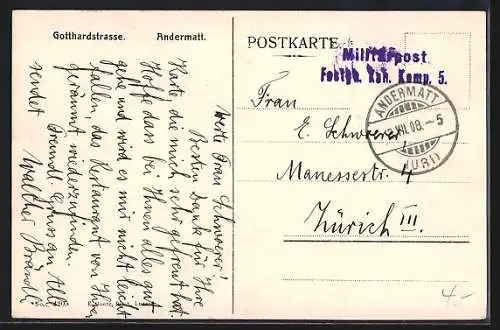 Gotthardstrasse. Andermatt.
POSTKARTE
Militärpost
Festgs. Kan. Komp. 5.
ANDERMATT
VII. 08. – 5
(URI)
Frau
E. Schwerer
Manessestr. 4
Zürich III.
Werte Frau Schwerer!
Besten Dank für Ihre
Karte, die mich sehr gefreut hat.
Hoffe dass bei Ihnen alles gut
gehe und wird es mir nicht leicht
fallen, das Restaurant von
geräumt wiederzufinden.
Freundl. Gruss an Alle
sendet
Walther Brändli
4.-